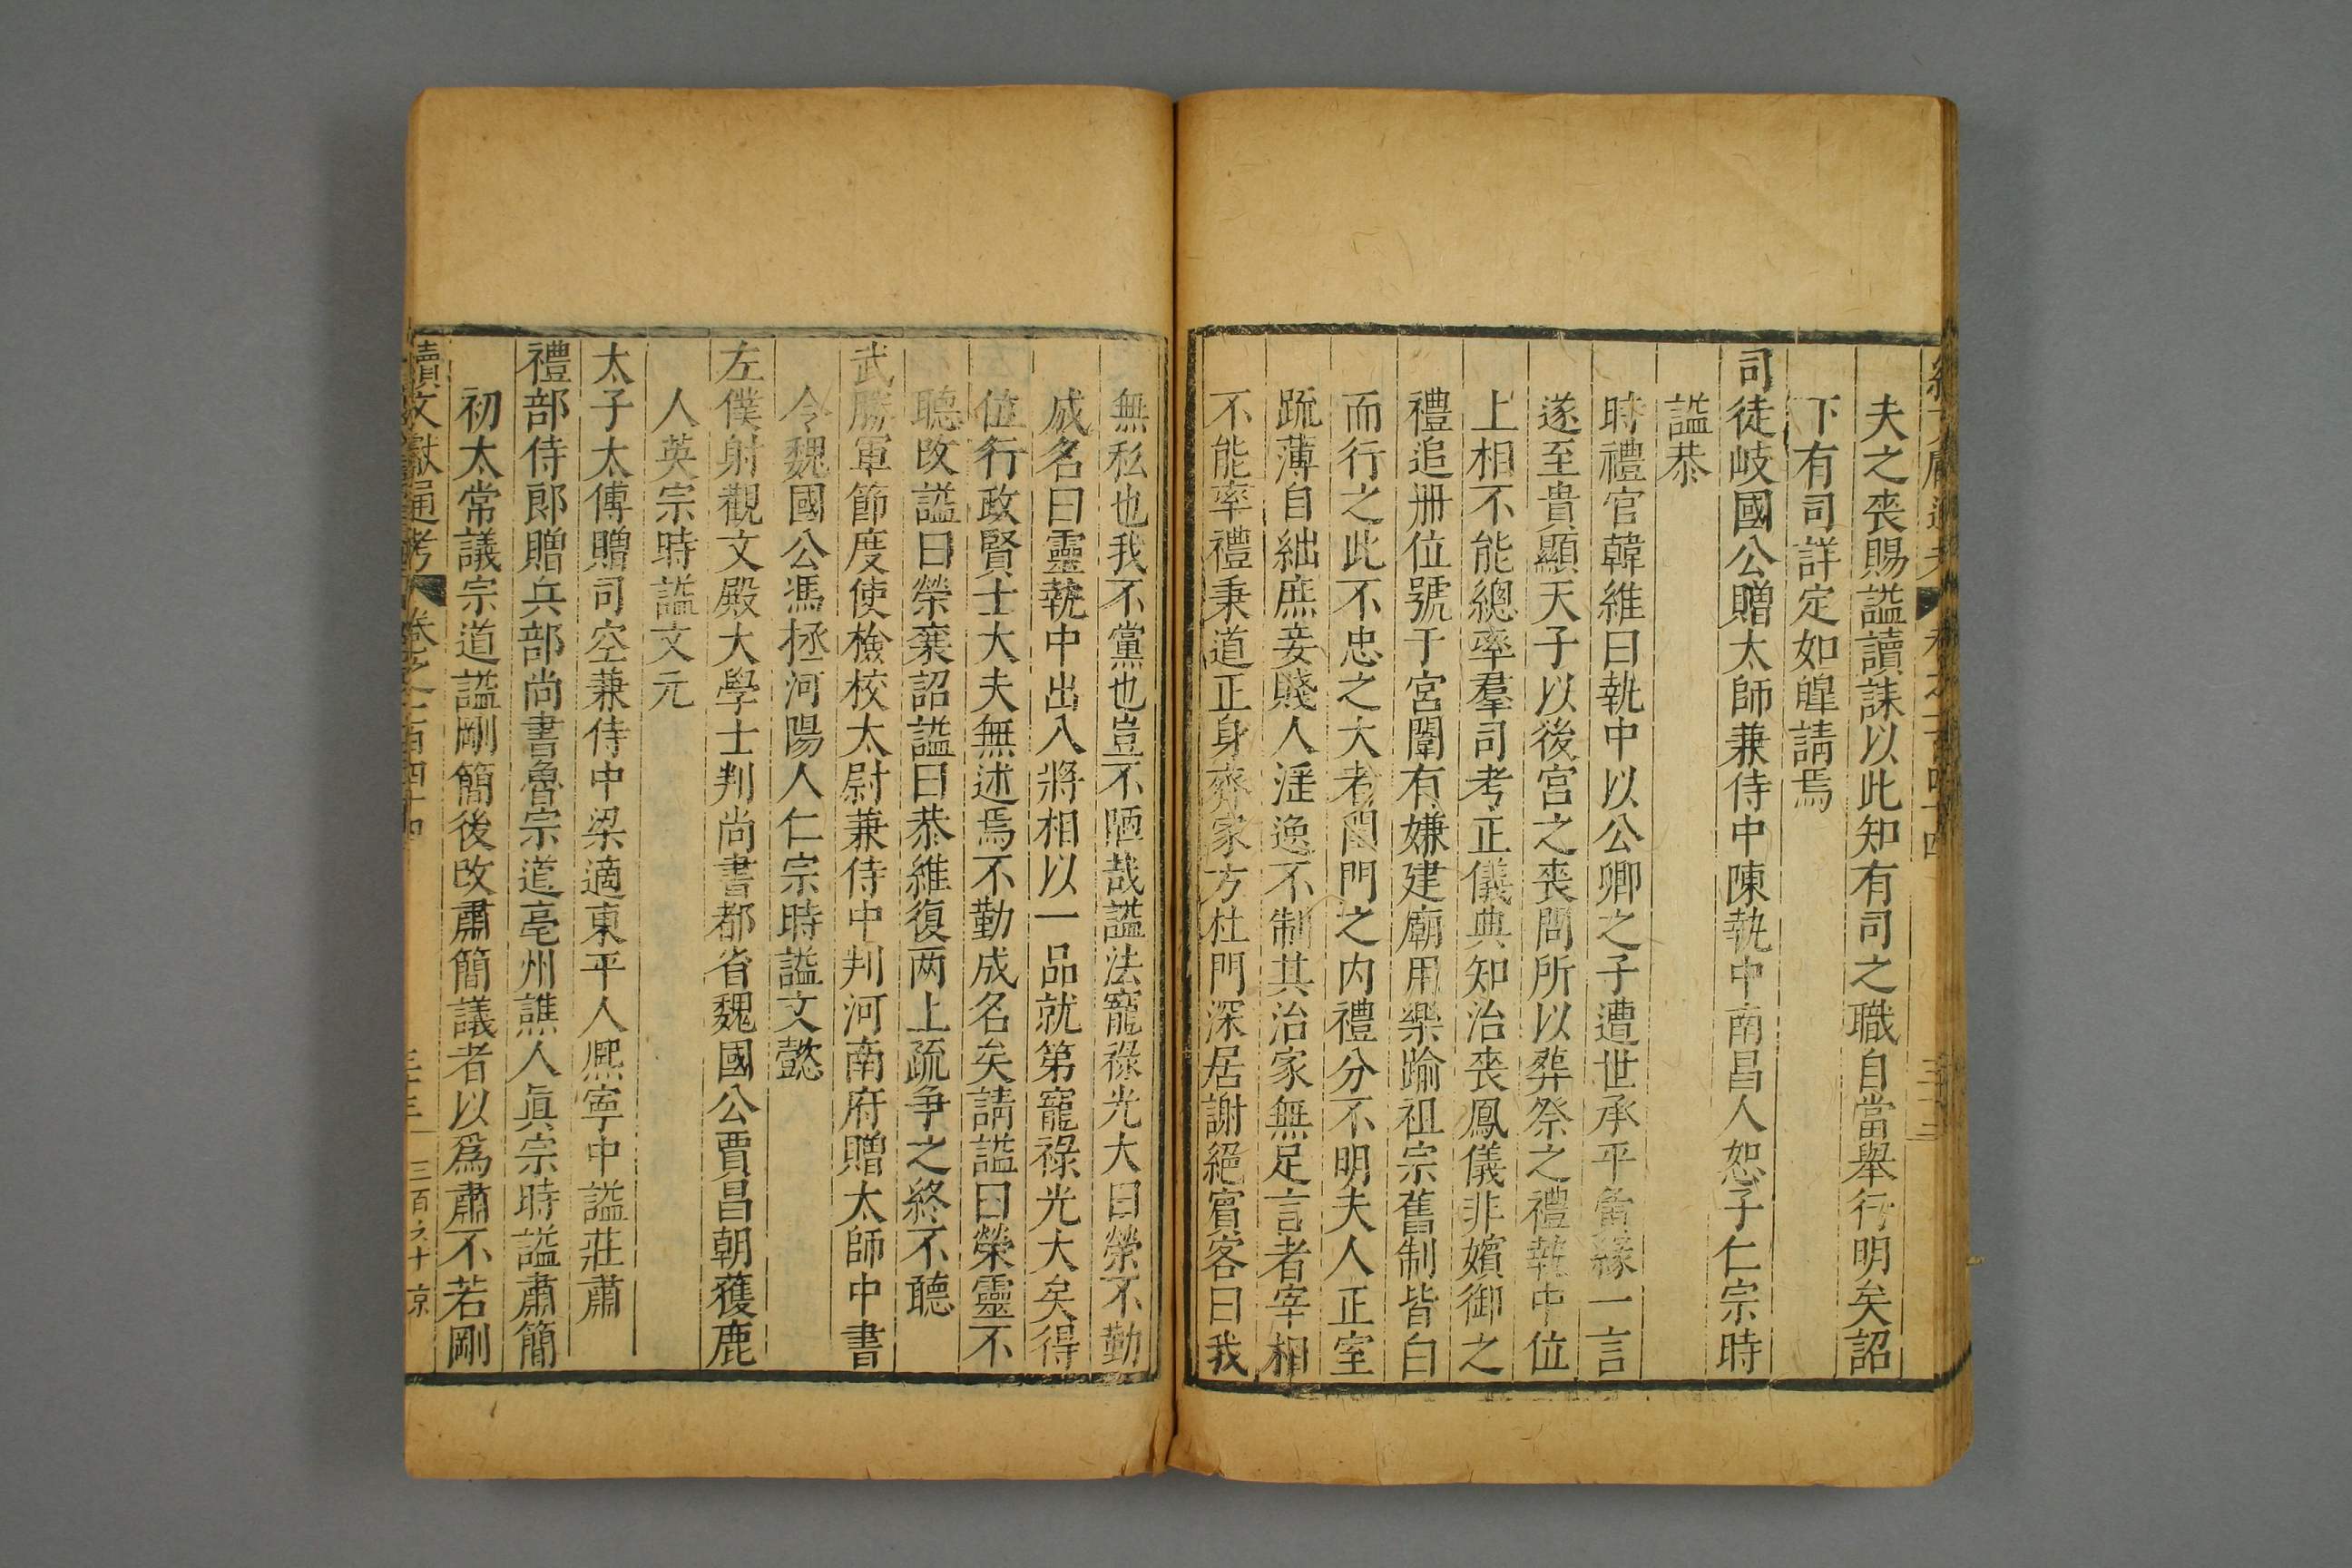 夫之喪賜謚讀誄以此知有司之職自當舉行明矣詔
下有司詳定如皥請焉
司徒岐國公贈太師兼侍中陳執中南昌人恕子仁宗時
謚恭
時禮官韓維曰執中以公卿之子遭世承平因緣一言
遂至貴顯天子以後宮之喪問所以葬祭之禮執中位
上相不能總率羣司考正儀典知治喪鳳儀非嬪御之
禮追册位號于宮闈有嫌建廟用樂踰祖宗舊制皆白
而行之此不忠之大者閨門之内禮分不明夫人正室
疏薄自絀庶妾賤人淫逸不制其治家無足言者宰相
不能率禮秉道正身齊家方杜門深居謝絕賓客曰我
無私也我不黨也豈不陋哉謚法寵祿光大曰榮不勤
成名曰靈執中出入將相以一品就第寵祿光大矣得
位行政賢士大夫無述焉不勤成名矣請謚曰榮靈不
聽改謚曰榮棄詔謚曰恭維復两上疏争之終不聽
武勝軍節度使檢校太尉兼侍中判河南府贈太師中書
令魏國公馮拯河陽人仁宗時謚文懿
左僕射觀文殿大學士判尚書都省魏國公賈昌朝獲鹿
人英宗時謚文元
太子太傅贈司空兼侍中梁適東平人熈寧中謚莊肅
禮部侍郎贈兵部尚書魯宗道亳州譙人眞宗時謚肅簡
初太常議宗道謚剛簡後改肅簡議者以爲肅不若剛
續文獻通考 卷之一百四十四 三十三 三百六十 京